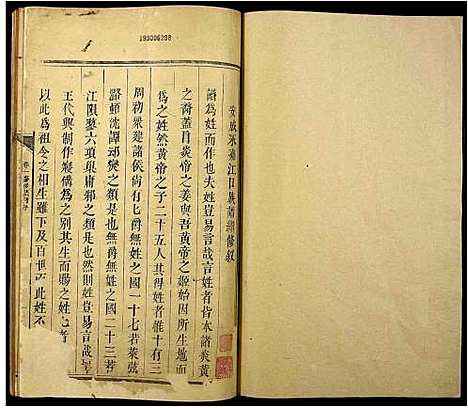 190006298
安成水溝江口族譜續修敘
譜爲姓而作也夫姓豈易言哉言姓者皆本諸炎黃
之裔蓋自炎帝之姜與吾黃帝之姬始因所生地而
爲之姓然黃帝之子二十五人其得姓者惟十有三
周初眾建諸侯尚有爵無姓之國一十七若萊弦
潞頓沈譚邳樊之類是也無爵無姓之國二十三若
江隕蓼六項巢庸邾之類是也然則姓豈易言哉
王代興制作寖備爲之別其生而賜之姓
以此爲祖今之相生雖下及百世此姓不